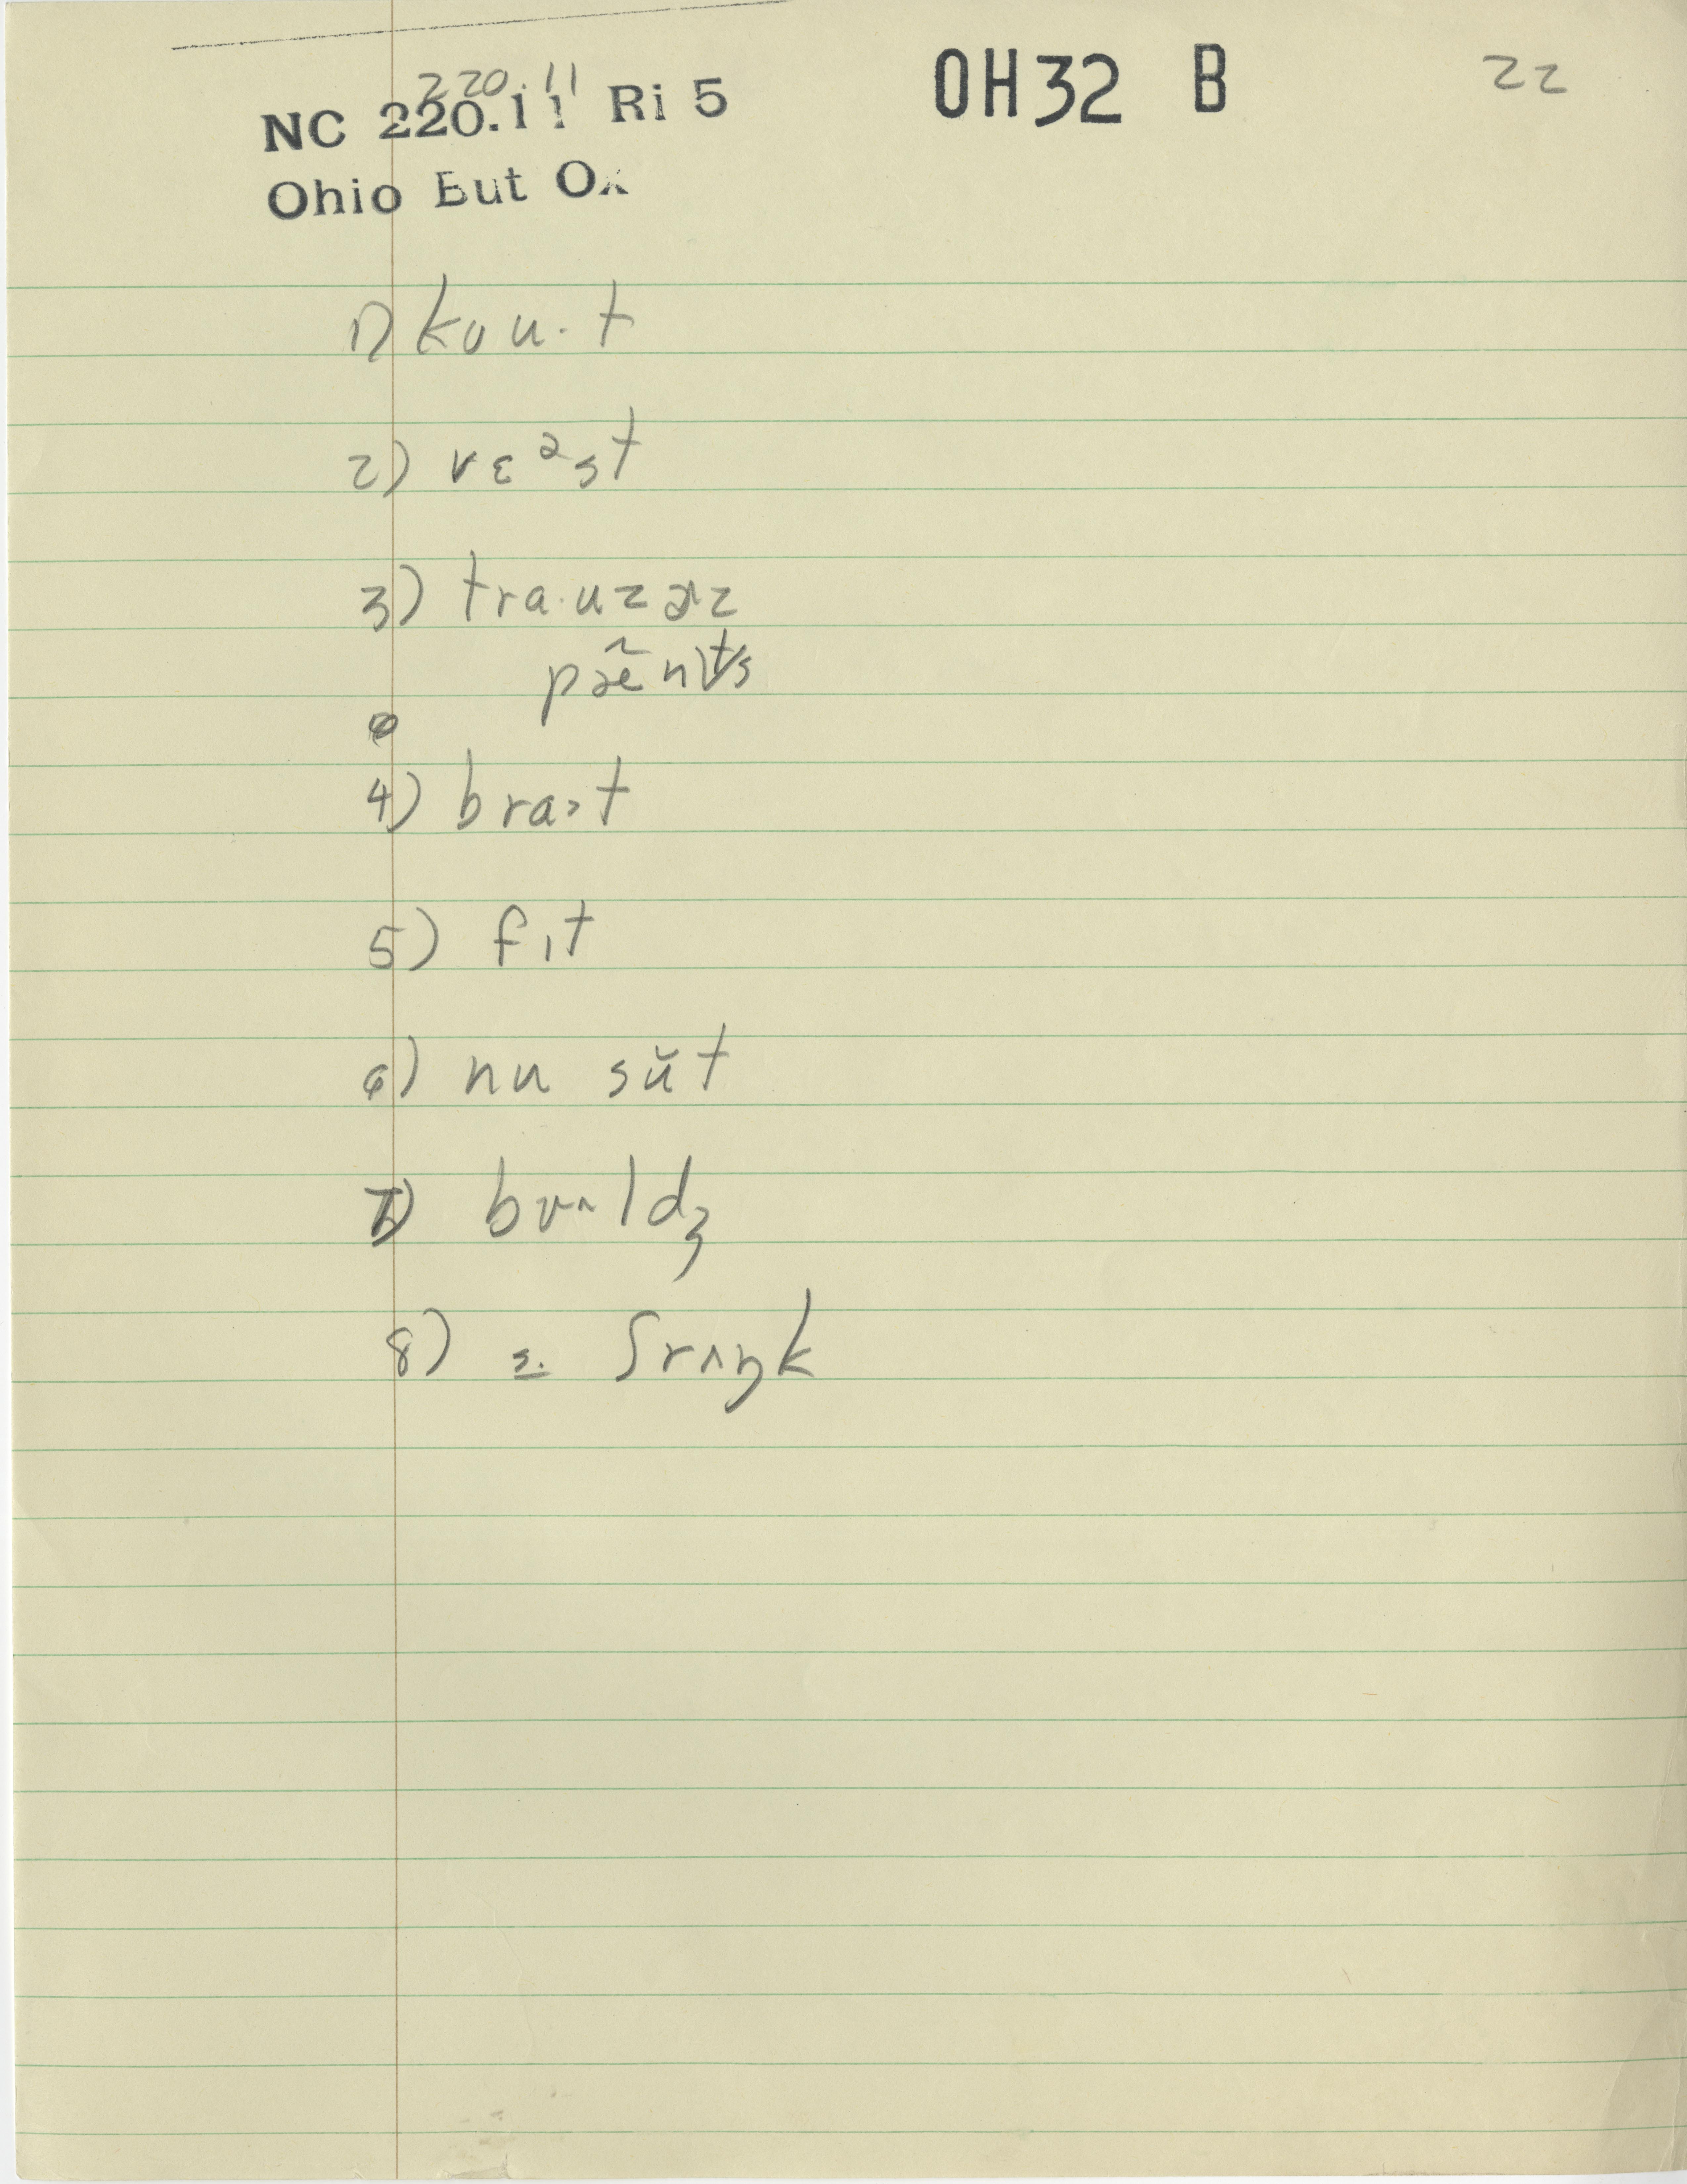 220.11
NC 220.11 Ri 5 OH32 B 22
Ohio But Ox
1) koʊ·t
2) vɛᵊst
3) tra·uzɚz
pæ̃nts
4) bra>t
5) fɪt
6) nu sŭt
7) bʌ^ldʒ
8) s. ʃrʌŋk